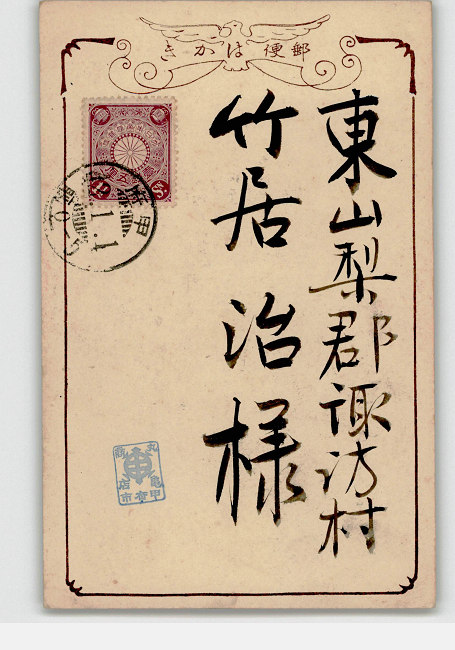 きかは便郵
東山梨郡諏訪村
竹居治様
甲
1.1